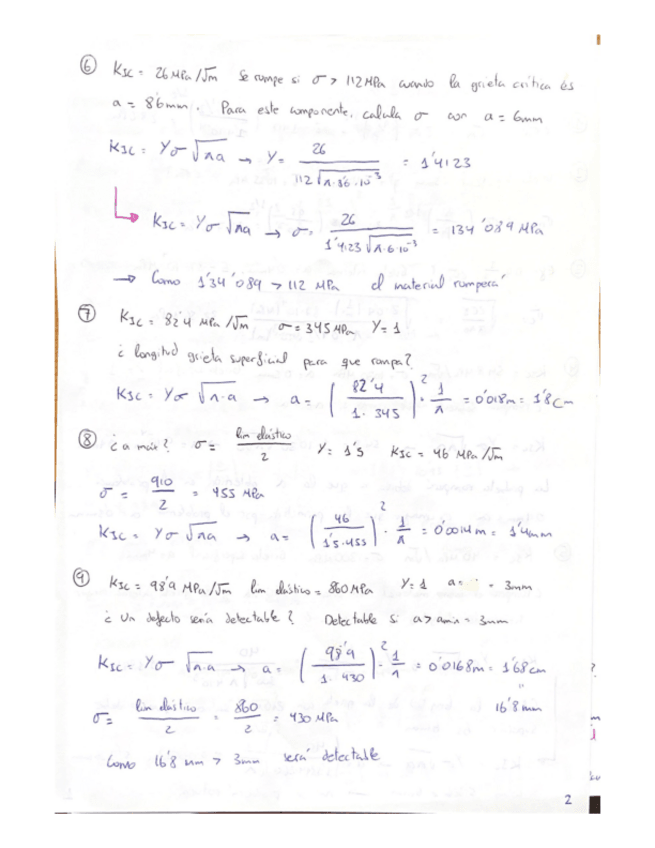 ⑥ K₁c = 26 MPa/√m Se rompe si σ > 112 MPa cuando la grieta crítica es
a = 8'6mm. Para este componente, calcula σ con a = 6mm
K₁c = Yσ √πa → Y = 26 / 112 √π·8'6·10⁻³ = 1'4123
K₁c = Yσ √πa → σ = 26 / 1'4123 √π·6·10⁻³ = 134'089 MPa
→ Como 134'089 > 112 MPa el material romperá
⑦ K₁c = 82'4 MPa/√m σ = 345 MPa Y = 1
¿ longitud grieta superficial para que rompa?
K₁c = Yσ √π·a → a = (82'4 / 1·345)² · 1/π = 0'018m = 1'8cm
⑧ ¿ a max? σ = lim elástico / 2 Y = 1'5 K₁c = 46 MPa/√m
σ = 910 / 2 = 455 MPa
K₁c = Yσ √πa → a = (46 / 1'5·455)² · 1/π = 0'0014m = 1'4mm
⑨ K₁c = 98'9 MPa/√m lim elástico = 860 MPa Y = 1 a = 3mm
¿ Un defecto sería detectable? Detectable si a > amin = 3mm
K₁c = Yσ √π·a → a = (98'9 / 1·430)² · 1/π = 0'0168m = 1'68cm
σ = lim elástico / 2 = 860 / 2 = 430 MPa
16'8 mm
Como 16'8 mm > 3mm será detectable
2